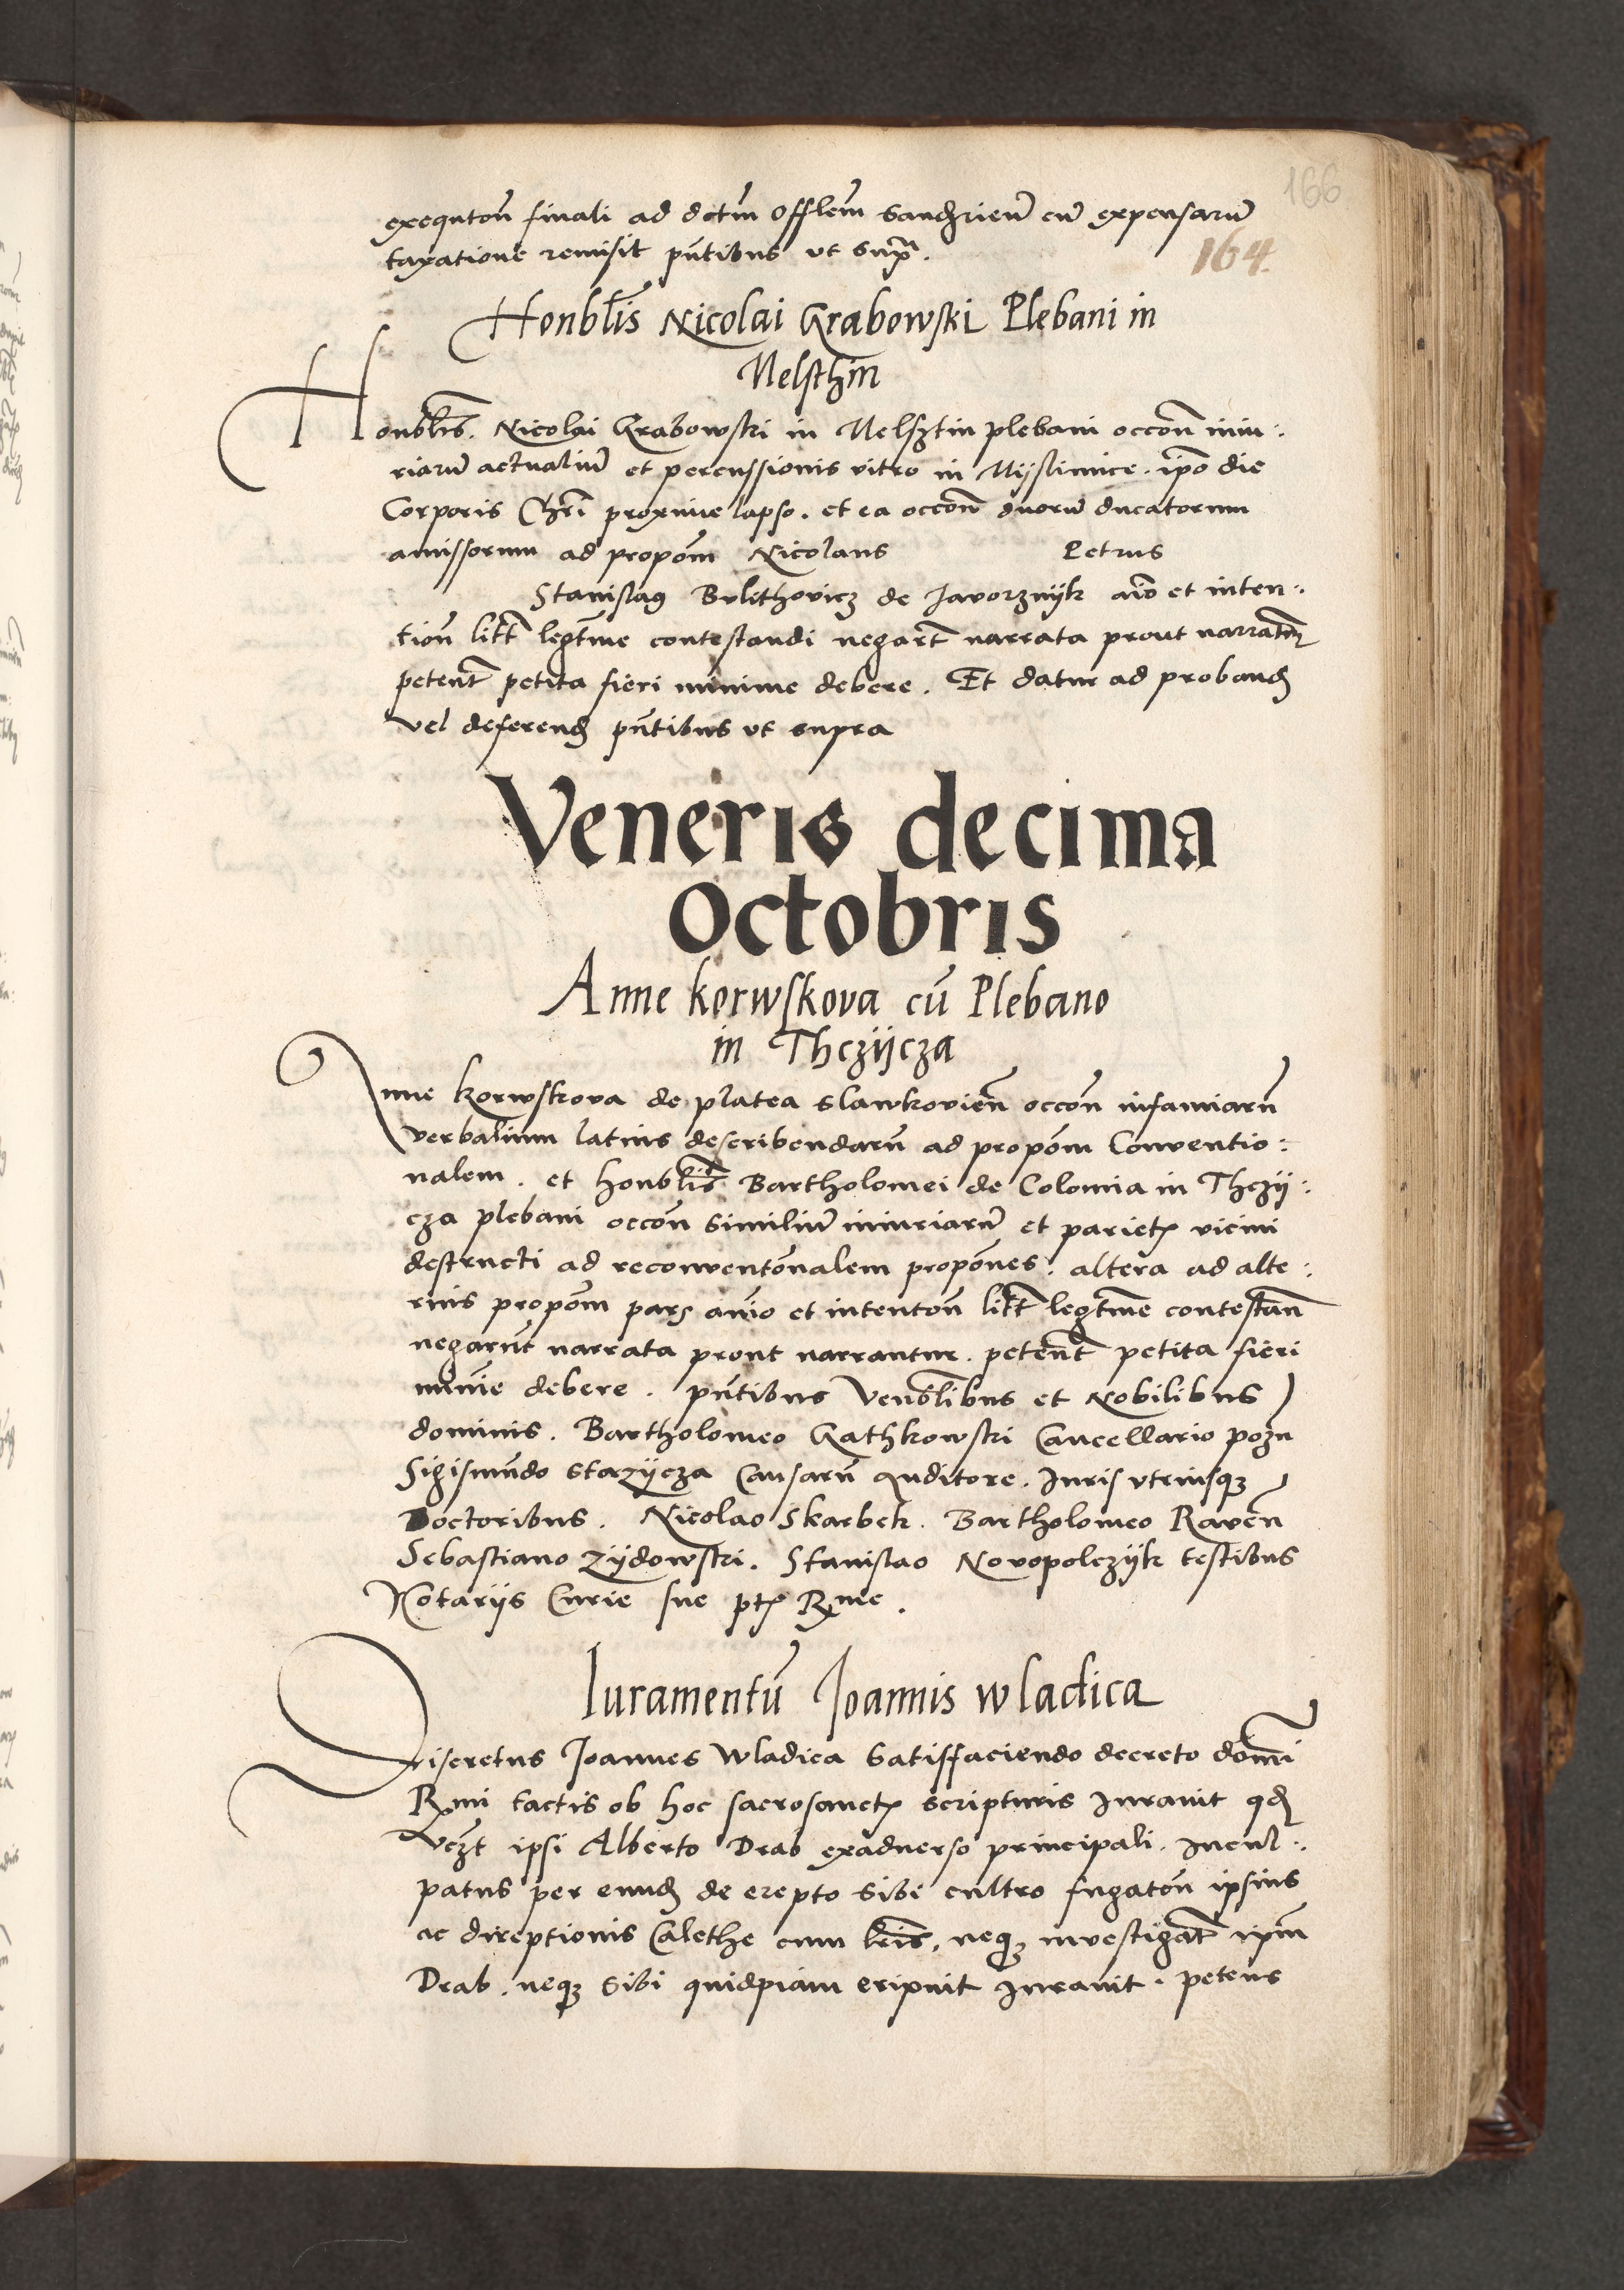 166
exequtoñ finali ad dctm̃ Offlem̃ Sandzrień cũ expensarũ
taxatione remisit pñtibus ut supra.
164.
Honblis̃ Nicolai Grabowski Plebani in
Melsthin
Honblis̃. Nicolai Grabowski in Melsztin plebani occoñ iniu:
riarũ actualiũ et percussionis vitro in Mijslimice. ipo die
Corporis Chri proxime lapso. et ea occoñ duorũ ducatorum
amissorum ad propom̃ Nicolaus Petrus
Stanislaus Bulithovicz de Javorznijk aio et inten:
tioñ litt legtme contestandi negart̃ narrata prout narrantur
petent̃ petita fieri minime debere. Et datur ad proband
vel deferend pñtibus ut supra
Veneris decima
Octobris
Anne korwskova cũ Plebano
in Thczijcza
Anne korwskova de platea Slawkovień occoñ infamiarũ
verbalium latius describendarũ ad propom̃ Conventio:
nalem. et honblis̃ Bartholomei de Colomia in Thczij:
cza plebani occoñ similiũ iniuriarũ et pariet vicini
destructi ad reconventoñalem propoñes. altera ad alte:
rius propom̃ pars aĩo et intentoñ litt legtme contestañ
negarũt narrata prout narrantur. petent̃ petita fieri
minime debere. pñtibus Venblibus et Nobilibus
dominis. Bartholomeo Gathkowski Cancellario pozn
Sigismũdo Starzijcza Causarũ Auditore. Juris utriusque
Doctoribus. Nicolao Skarbek. Bartholomeo Raveñ
Sebastiano Zijdowski. Stanislao Novopolczijk testibus
Notarijs Curie sue pt Rme.
Iuramentũ Joannis wladica
Discretus Joannes Wladica Satisfaciendo decreto domĩ
Rmi tactis ob hoc sacrosanct scripturis Juravit qd
ipsi Alberto Drab exadverso principali. Incul:
patus per eund de erepto sibi cultro fugatoñ ipsius
ac direptionis Calethe cum lris̃, neque investigat̃ ipm̃
Drab. neque sibi quidpiam eripuit Juravit. petens